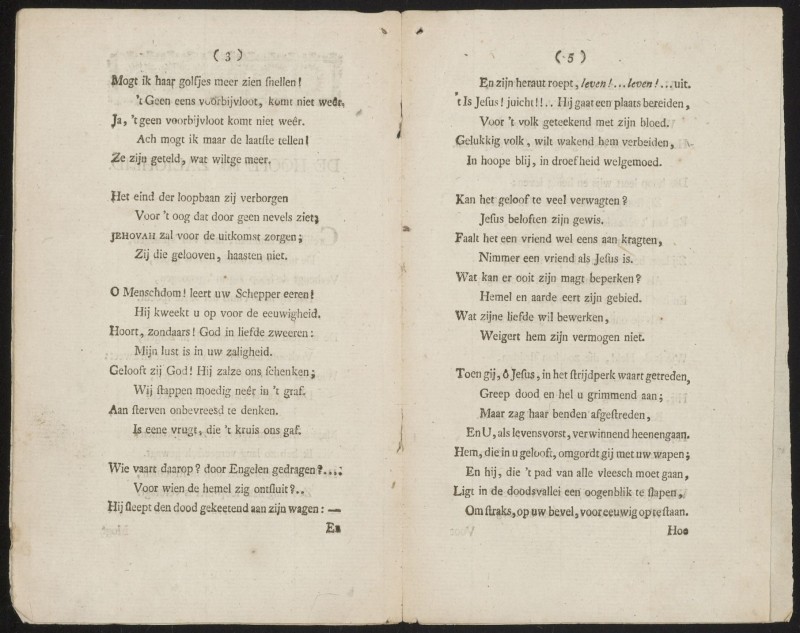 ( 3 )
Mogt ik haar golfjes meer zien ſnellen!
't Geen eens voorbijvloot, komt niet weêr.
Ja, 't geen voorbijvloot komt niet weêr.
Ach mogt ik maar de laatſte tellen!
Ze zijn geteld, wat wiltge meer.
Het eind der loopbaan zij verborgen
Voor 't oog dat door geen nevels ziet;
JEHOVAH zal voor de uitkomst zorgen;
Zij die gelooven, haasten niet.
O Menschdom! leert uw Schepper eeren!
Hij kweekt u op voor de eeuwigheid.
Hoort, zondaars! God in liefde zweeren:
Mijn lust is in uw zaligheid.
Gelooft zij God! Hij zalze ons ſchenken;
Wij ſtappen moedig neêr in 't graf.
Aan ſterven onbevreesd te denken.
Is eene vrugt, die 't kruis ons gaf.
Wie vaart daarop? door Engelen gedragen?...;
Voor wien de hemel zig ontſluit?..
Hij ſleept den dood gekeetend aan zijn wagen: —
En
( 5 )
En zijn heraut roept, leven!... leven!... uit.
't Is Jeſus! juicht!!.. Hij gaat een plaats bereiden,
Voor 't volk geteekend met zijn bloed.
Gelukkig volk, wilt wakend hem verbeiden,
In hoope blij, in droefheid welgemoed.
Kan het geloof te veel verwagten?
Jeſus beloften zijn gewis.
Faalt het een vriend wel eens aan kragten,
Nimmer een vriend als Jeſus is.
Wat kan er ooit zijn magt beperken?
Hemel en aarde eert zijn gebied.
Wat zijne liefde wil bewerken,
Weigert hem zijn vermogen niet.
Toen gij, ô Jeſus, in het ſtrijdperk waart getreden,
Greep dood en hel u grimmend aan;
Maar zag haar benden afgeſtreden,
En U, als levensvorst, verwinnend heenengaan.
Hem, die in u gelooft, omgordt gij met uw wapen;
En hij, die 't pad van alle vleesch moet gaan,
Ligt in de doodsvallei een oogenblik te ſlapen,
Om ſtraks, op uw bevel, voor eeuwig op te ſtaan.
Hoe